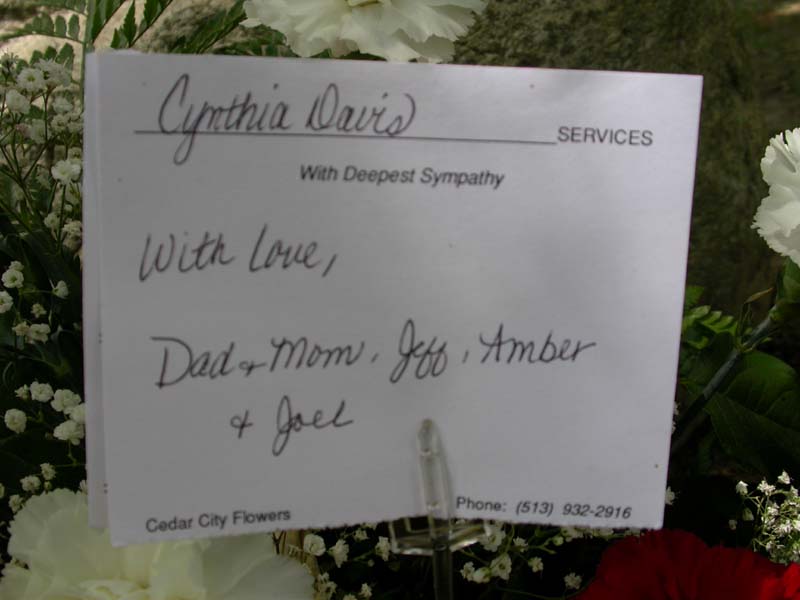 Cynthia Davis SERVICES
With Deepest Sympathy
With Love,
Dad & Mom, Jeff, Amber
& Joel
Cedar City Flowers Phone: (513) 932-2916